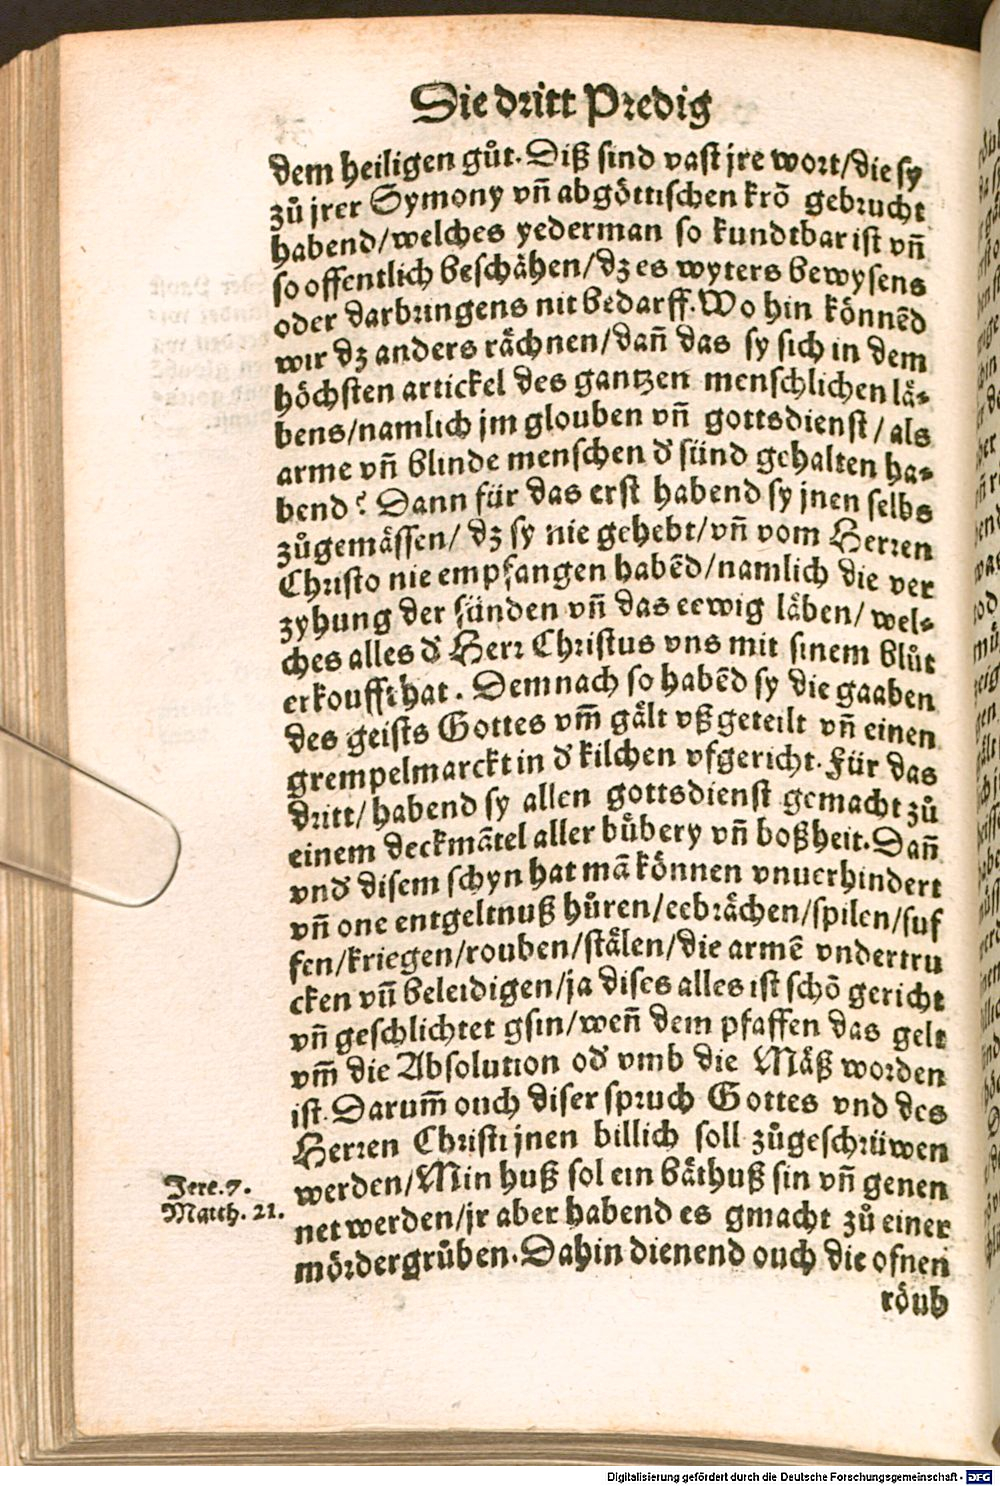 Die dritt Predig
dem heiligen gůt. Diß sind vast jre wort/die sy
zů jrer Symony vñ abgöttischen krō gebrucht
habend/welches yederman so kundtbar ist vñ
so offentlich beschähen/dz es wyters bewysens
oder darbringens nit bedarff. Wo hin könnēd
wir dz anders rächnen/dañ das sy sich in dem
höchsten artickel des gantzen menschlichen lä-
bens/namlich jm glouben vñ gottsdienst/als
arme vñ blinde menschen d' sünd gehalten ha-
bend? Dann für das erst habend sy jnen selbs
zůgemässen/ dz sy nie gehebt/vñ vom Herren
Christo nie empfangen habēd/namlich die ver
zyhung der sünden vñ das eewig läben/ wel-
ches alles d' Herr Christus vns mit sinem blůt
erkoufft hat. Demnach so habēd sy die gaaben
des geists Gottes vm̄ gält vßgeteilt vñ einen
grempelmarckt in d' kilchen vfgericht. Für das
dritt/ habend sy allen gottsdienst gemacht zů
einem deckmātel aller bůbery vñ boßheit. Dañ
vnd' disem schyn hat mā können vnuerhindert
vñ one entgeltnuß hůren/eebrächen/spilen/suf
fen/kriegen/rouben/stälen/die armē vndertru
cken vñ beleidigen/ja dises alles ist schō gericht
vñ geschlichtet gsin/weñ dem pfaffen das gelt
vm̄ die Absolution od' vmb die Mäß worden
ist. Darum̄ ouch diser spruch Gottes vnd des
Herren Christi jnen billich soll zůgeschriwen
werden/Min huß sol ein bäthuß sin vñ genen
net werden/jr aber habend es gmacht zů einer
mördergrůben. Dahin dienend ouch die ofnen
röub
Jere. 7.
Matth. 21.
Digitalisierung gefördert durch die Deutsche Forschungsgemeinschaft - DFG